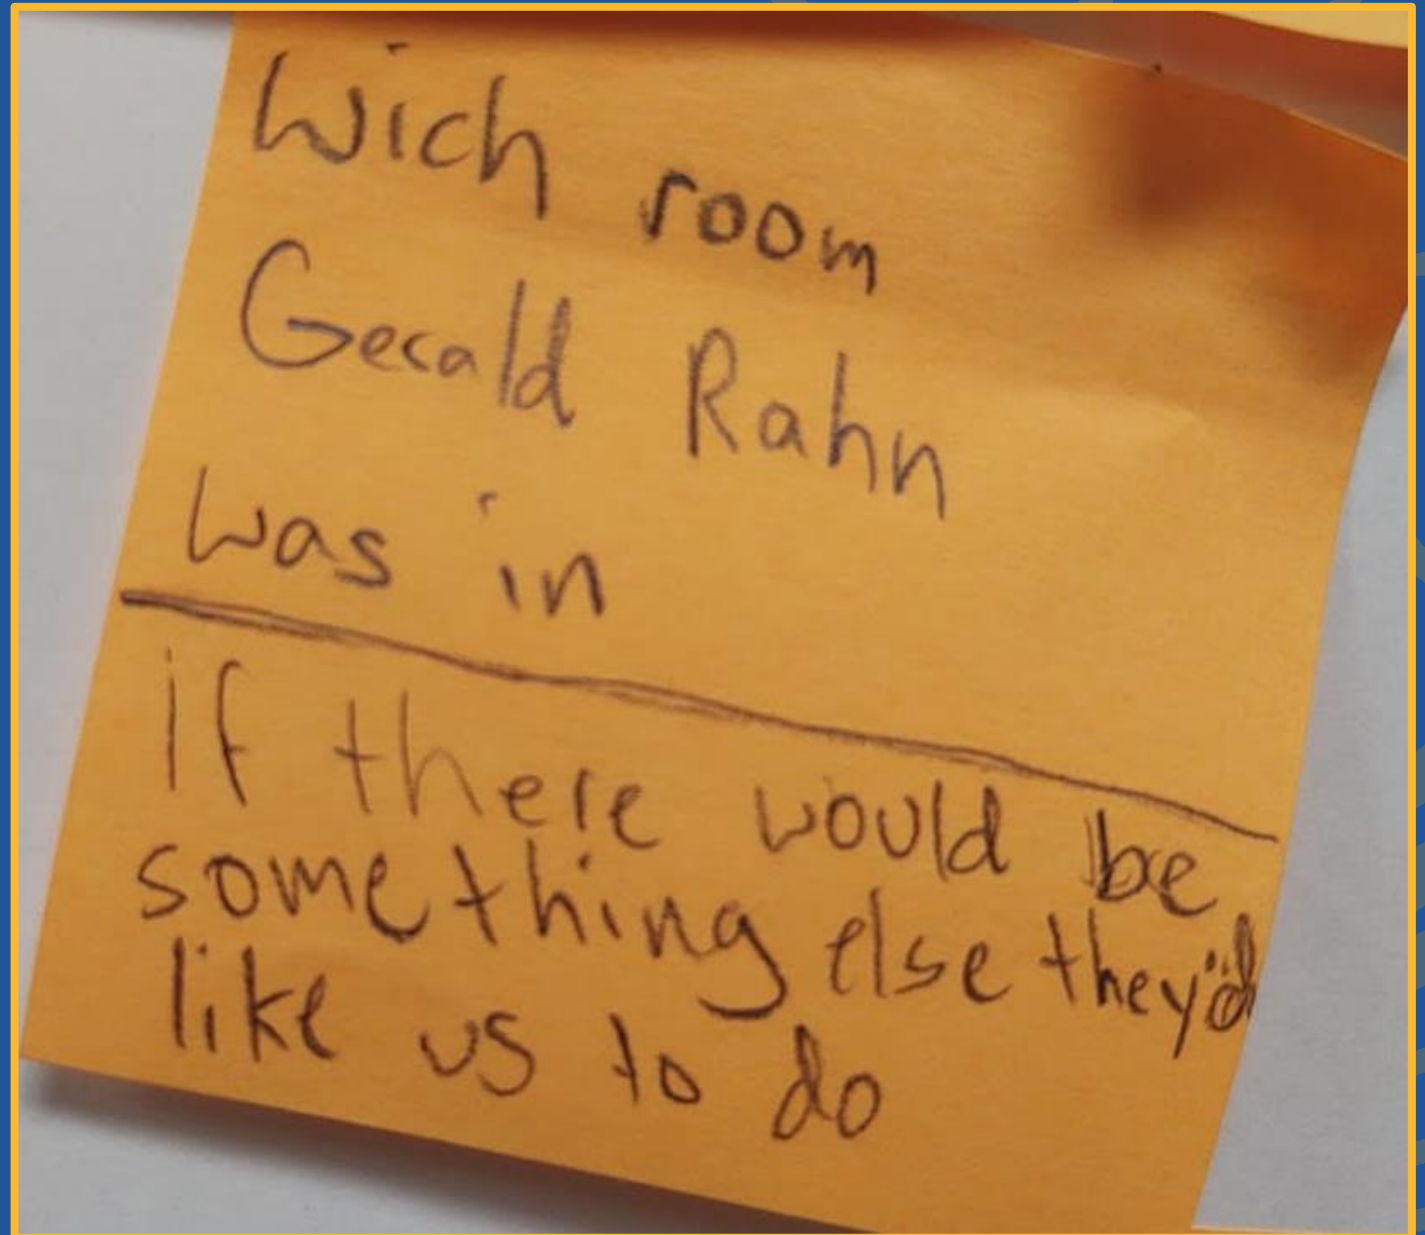 Wich room
Gerald Rahn
was in
if there would be
something else they'd
like us to do